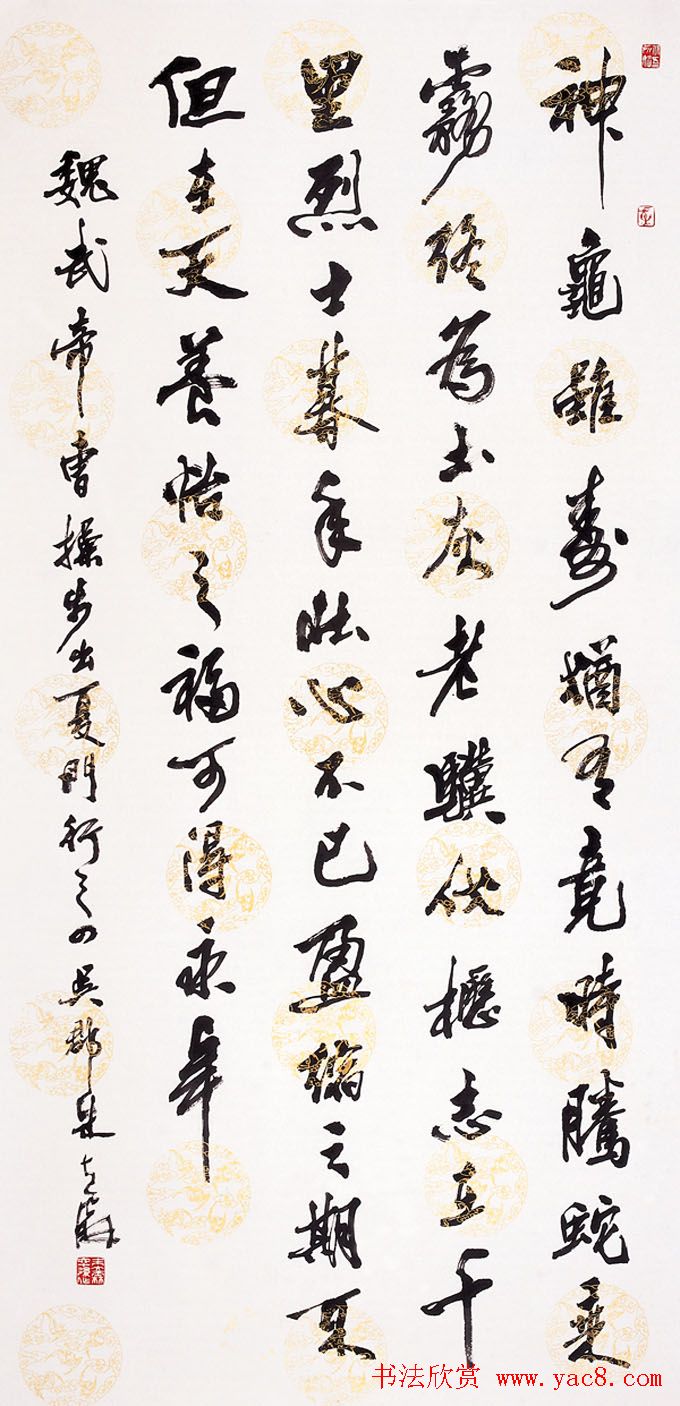 神龜雖壽猶有竟時騰蛇乘
霧終為土灰老驥伏櫪志在千
里烈士暮年壯心不已盈縮之期不
但在天養怡之福可得永年
魏武帝曹操步出夏門行之四吳郡朱
书法欣赏 www.yac8.com